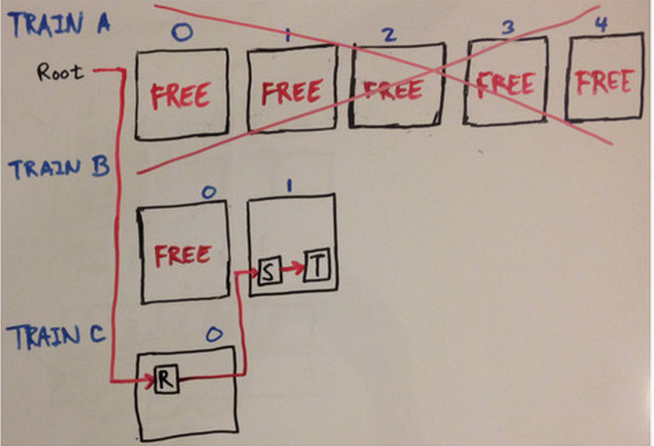 TRAIN A 0 1 2 3 4
Root FREE FREE FREE FREE FREE
TRAIN B
0 1
FREE S T
TRAIN C 0
R